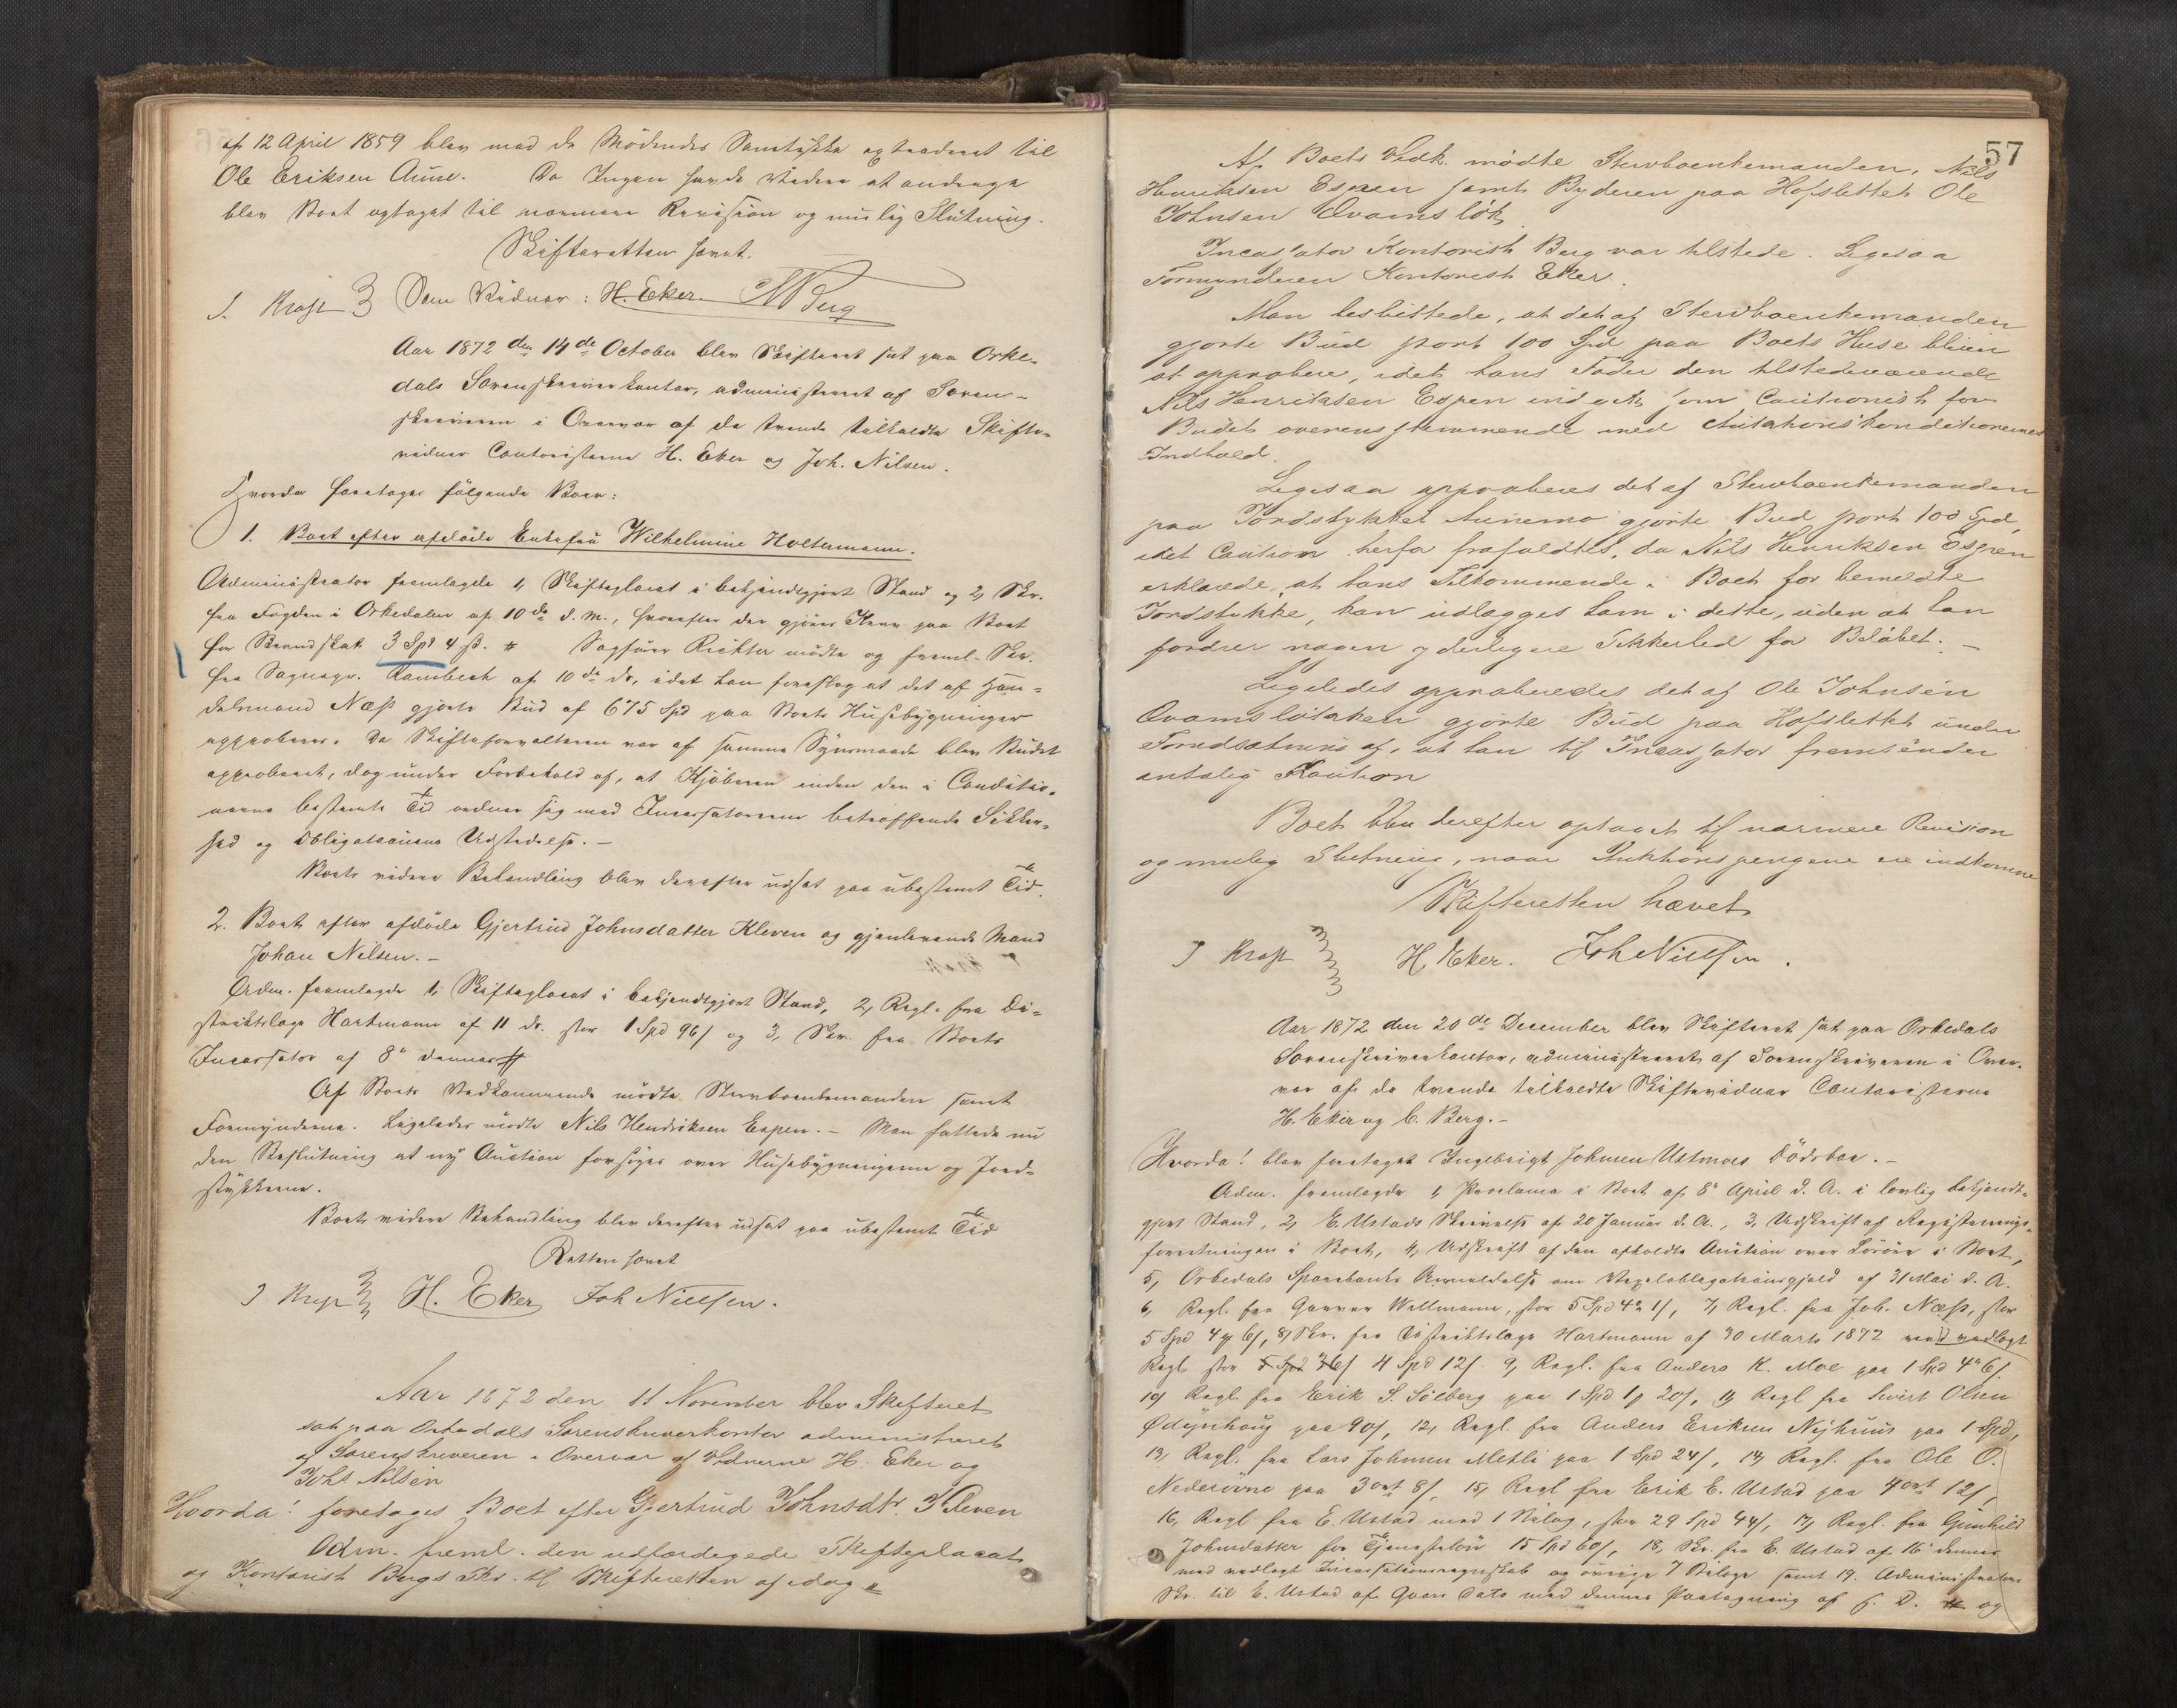 af 12 April 1859 blev med de Mødendes Samtykke extraderet til
Ole Eriksen Aune. Da Ingen havde videre at andrage
blev Boet optaget til nærmere Revision og mulig Slutning.
Skifteretten hævet.
J. Kraft Som Vidner: H. Eker. Berg
Aar 1872 den 14de October blev Skifteret sat paa Orke-
dals Sorenskriverkontor, administreret af Soren-
skriveren i Overvær af de tvende tilkaldte Skifte-
vidner Contoristerne H. Eker og Joh. Nilsen.
Hvorda foretages følgende Boer:
1. Boet efter afdøde Enkefru Wilhelmine Holtermann.
Administrator fremlagde 1, Skifteplacat i bekjendtgjort Stand og 2, Skr.
fra Fogden i Orkedalen af 10de d. M., hvorefter der gjøres Krav paa Boet
for Brandskat 3 Spd 4 ß. Sagfører Richter mødte og freml. Skr.
fra Sagfører Rambech af 10de ds., idet han foreslog at det af Han-
delsmand Næss gjorte Bud af 675 Spd paa Boets Husebygninger
approberes. Da Skifteforvalteren var af samme Synsmaade blev Budet
approberet, dog under Forbehold af, at Kjøberen inden den i Conditio-
nerne bestemte Tid ordner sig med Incassatorerne betræffende Sikker-
hed og Obligationens Udstedelse. -
Boets videre Behandling blev derefter udsat paa ubestemt Tid.
2. Boet efter afdøde Gjertrud Johnsdatter Kleven og gjenlevende Mand
Johan Nilsen. -
Adm. fremlagde 1, Skifteplacat i bekjendtgjort Stand, 2, Regl. fra Di-
striktslæge Hartmann af 11 ds. stor 1 Spd 96 ß og 3, Skr. fra Boets
Incassator af 8de dennes
Af Boets Vedkommende mødte Stervboenkemanden samt
Formynderne. Ligeledes mødte Nils Hendriksen Espen. - Man fattede nu
den Beslutning at ny Auction forsøges over Husebygningerne og Jord-
stykkerne.
Boets videre Behandling blev derefter udsat paa ubestemt Tid
Retten hævet
J Kraft H. Eker Joh Nielsen.
Aar 1872 den 11 November blev Skifteret
sat paa Orkedals Sorenskriverkontor administreret
af Sorenskriveren i Overvær af Vidnerne H. Eker og
Johs Nilsen
Hvorda! foretoges Boet efter Gjertrud Johnsdtr. Kleven
Adm. freml. den udfærdigede Skifteplacat
og Kontorist Bergs Skr. til Skifteretten af idag
57
Af Boets Vedk. mødte Stervboenkemanden, Nils
Henriksen Espen samt Byderen paa Hofslettet Ole
Johnsen Qvamsløk
Incassator Kontorist Berg var tilstede. Ligesaa
Formynderen Kontorist Eker.
Man besluttede, at det af Stervboenkemanden
gjorte Bud stort 100 Spd paa Boets Huse bliver
at approbere, idet hans Fader den tilstedeværende
Nils Henriksen Espen indgik som Cautionist for
Budet overensstemmende med Auktionskonditionernes
Indhold.
Ligesaa approberes det af Stervboenkemanden
paa Jordstykket Aunemo gjorte Bud stort 100 Spd,
idet Caution herfor frafaldtes, da Nils Henriksen Espen
erklærede, at hans Tilkommende i Boet for bemeldte
Jordstykke, kan udlægges ham i dette, uden at han
fordrer nogen yderligere Sikkerhed for Beløbet. -
Ligeledes approberedes det af Ole Johnsen
Qvamsløkken gjorte Bud paa Hofslettet under
Forudsætning af, at han til Incassator fremsender
antagelig Kaution
Boet blev derefter optaget til nærmere Revision
og mulig Slutning, naar Auktionspengene ere indkomne
Skifteretten hævet
J Kraft H. Eker. Joh Nielsen.
Aar 1872 den 20de December blev Skifteret sat paa Orkedals
Sorenskriverkontor, administreret af Sorenskriveren i Over-
vær af de tvende tilkaldte Skiftevidner Contoristerne
H. Eker og C. Berg. -
Hvorda! blev foretaget Ingebrigt Johnsen Ustmoes Dødsbo. -
Adm. fremlagde 1, Proclama i Boet af 8de April d. A. i lovlig bekjendt-
gjort Stand, 2, E. Ustads Skrivelse af 20 Januar d. A., 3, Udskrift af Registrerings-
forretningen i Boet, 4, Udskrift af den afholdte Auction over Løsøre i Boet,
5, Orkedals Sparebanks Anmeldelse om Vexelobligationsgjæld af 31 Mai d. A.
6, Regl. fra Garver Wellmann, stor 5 Spd 4 1 ß, 7, Regl. fra Joh. Næss, stor
5 Spd 4 6 ß, 8, Skr. fra Distriktslæge Hartmann af 30 Marts 1872 med vedlagt
Regl. stor 4 Spd 12 ß. 9, Regl. fra Anders K. Moe paa 1 Spd 4 6 ß.
10, Regl. fra Erik S. Solberg paa 1 Spd 1 20 ß, 11, Regl fra Sivert Olsen
Ødynhaug paa 90 ß, 12, Regl. fra Anders Eriksen Nyhuus paa 1 Spd,
13, Regl. fra Lars Johnsen Metli paa 1 Spd 24 ß, 14, Regl. fra Ole O.
Nederøvne paa 3 ort 8 ß, 15, Regl fra Erik E. Ustad paa 4 ort 12 ß,
16, Regl fra E. Ustad med 1 Bilag, stor 29 Spd 44 ß, 17, Regl. fra Gunhild
Johnsdatter for Tjenesteløn 15 Spd 60 ß, 18, Skr. fra E. Ustad af 16 dennes
med vedlagt Incassationsregnskab og øvrige 7 Bilage samt 19. Administrators
Skr. til E. Ustad af Gaars Dato med dennes Paategning af s. D. og